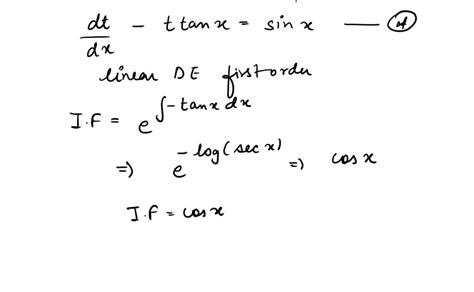 dt/dx - t tan x = sin x — (A)
linear DE first order
I.F = e^∫-tan x dx
=> e^-log(sec x) => cos x
I.F = cos x